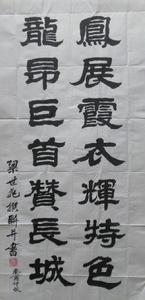 鳳展霞衣輝特色
龍昂巨首贊長城
梁世兆撰聯并書